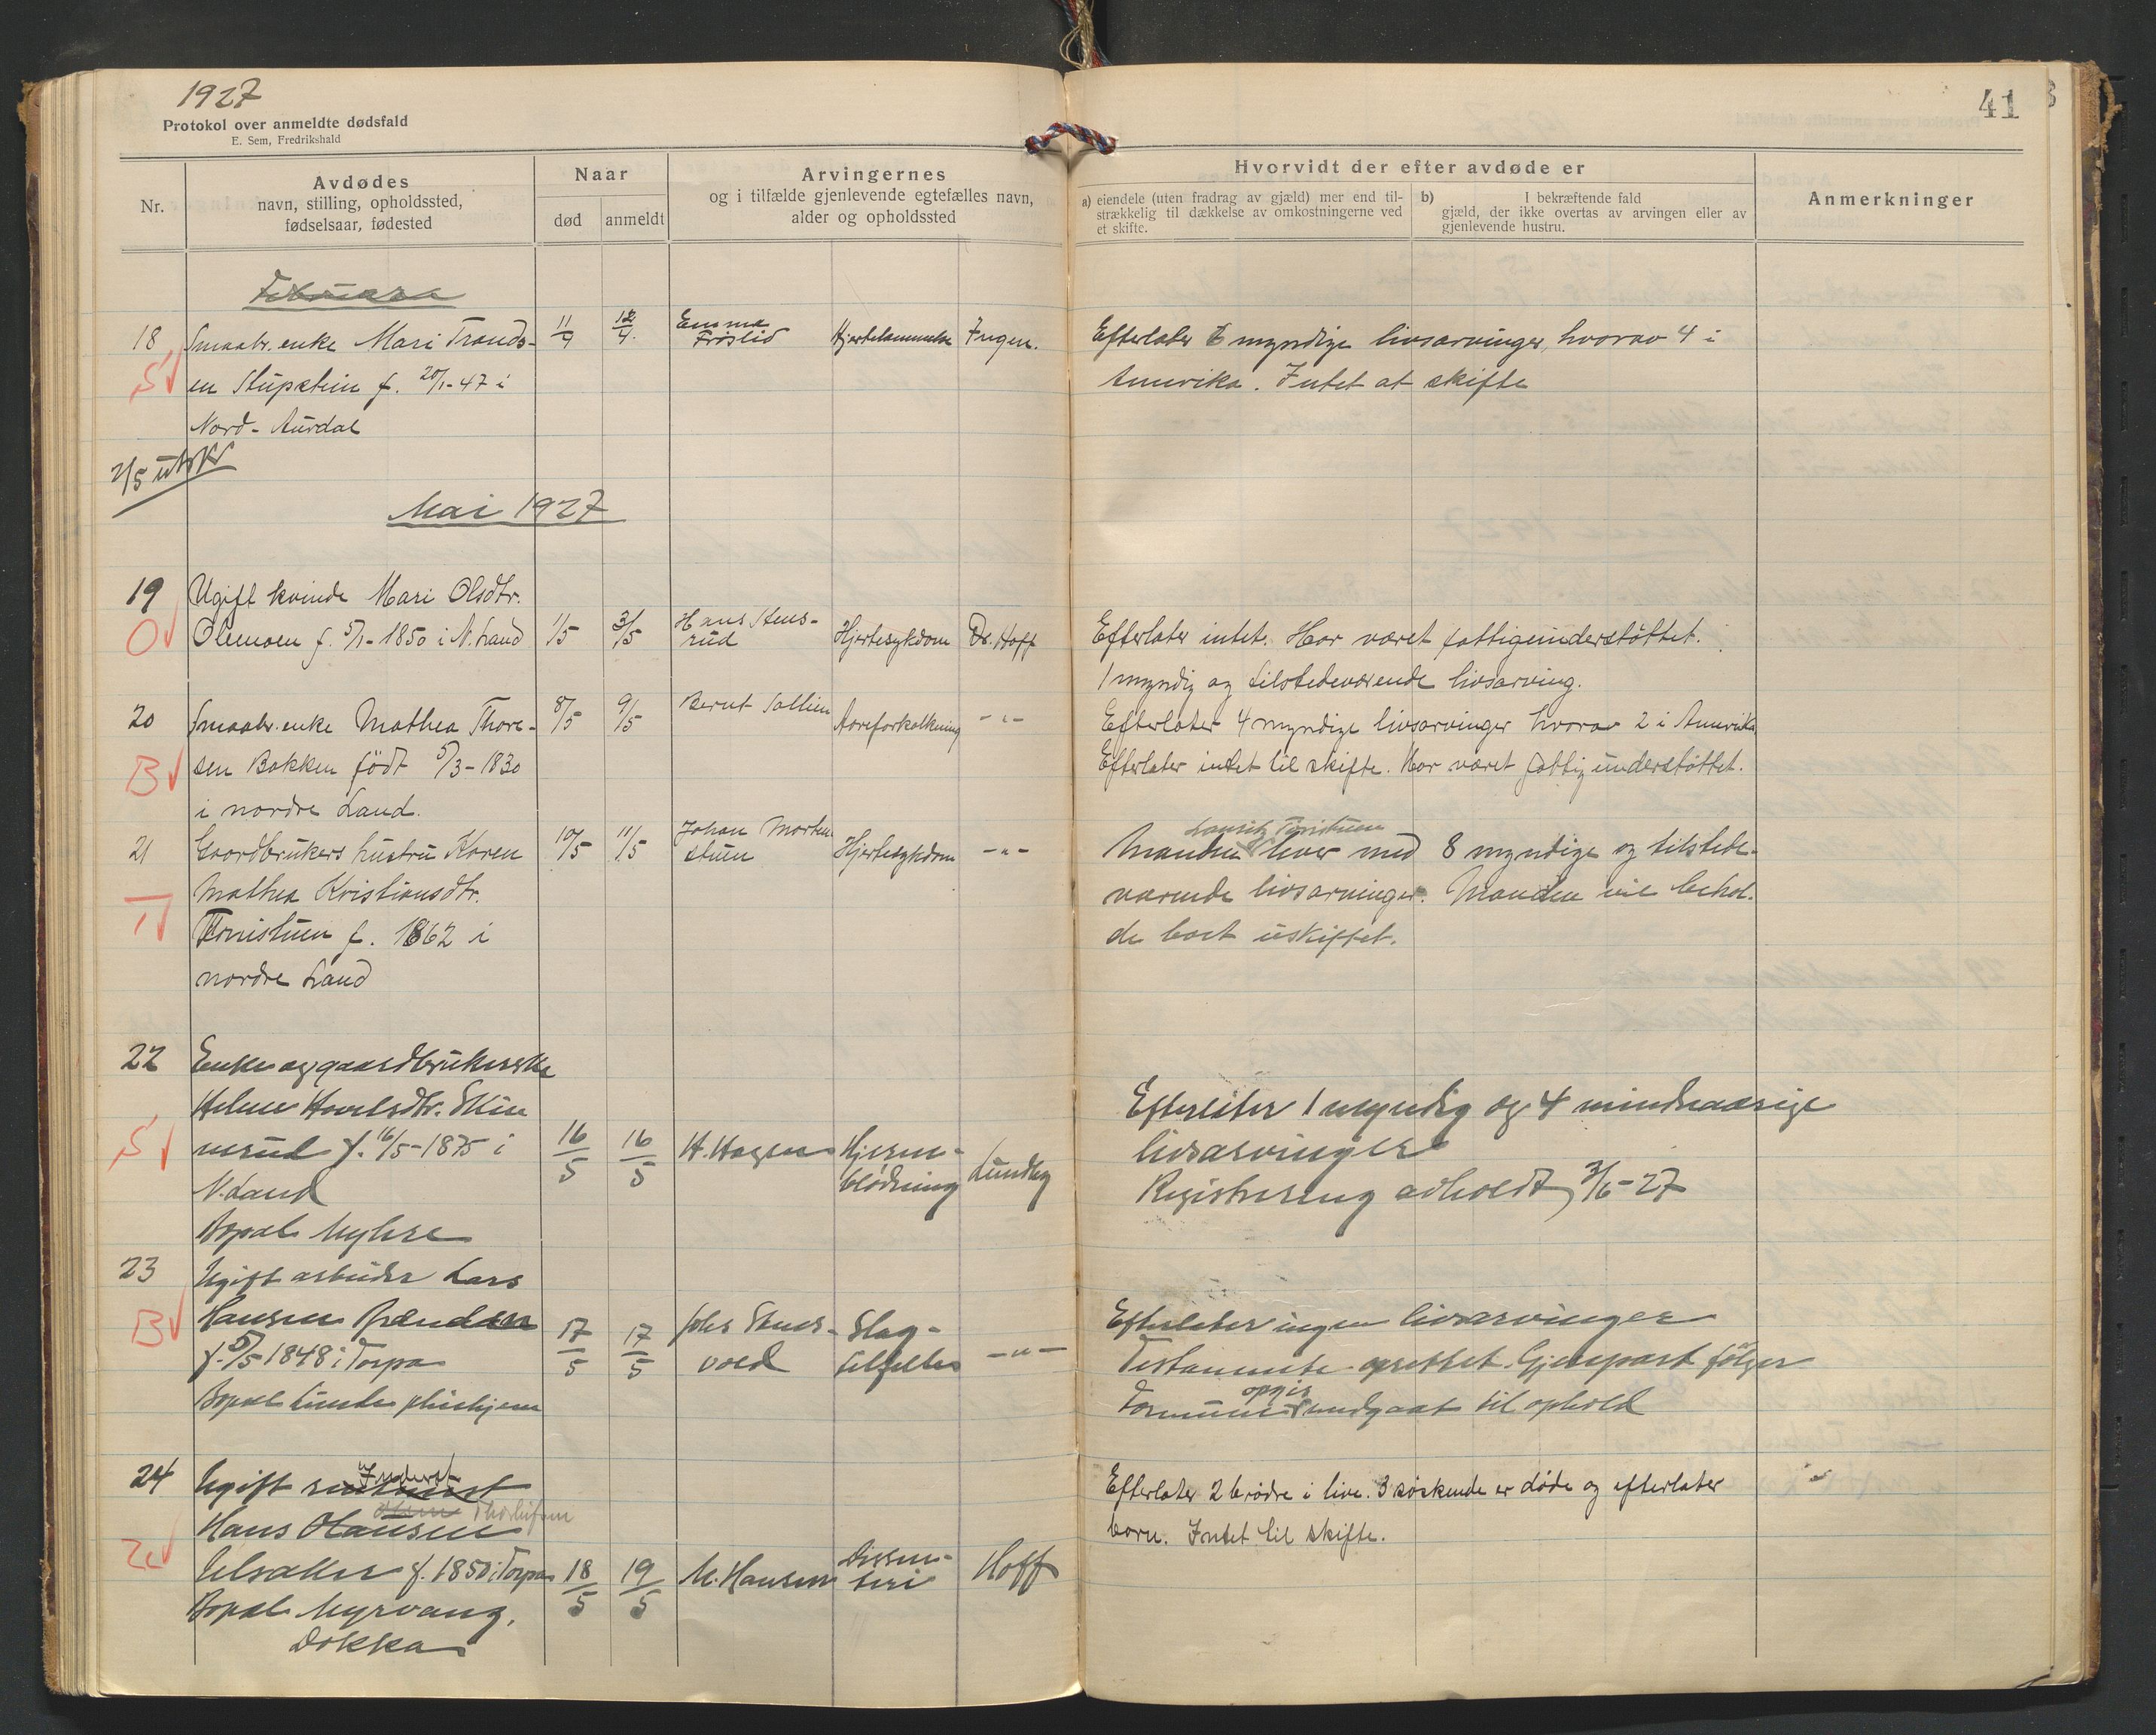 1927
Protokol over anmeldte dødsfald
E. Sem, Fredrikshald
41
Nr.
Avdødes
navn, stilling, opholdssted,
fødselsaar, fødested
Naar
død
anmeldt
Arvingernes
og i tilfælde gjenlevende egtefælles navn,
alder og opholdssted
Hvorvidt der efter avdøde er
a) eiendele (uten fradrag av gjæld) mer end til-
strækkelig til dækkelse av omkostningerne ved
et skifte.
b) I bekræftende fald
gjæld, der ikke overtas av arvingen eller av
gjenlevende hustru.
Anmerkninger
Februar
18 Smaabr. enke Mari Tronds- 11/4 12/4 Emma Frøslid Hjertelammelse Ingen. Efterlater 6 myndige livsarvinger, hvorav 4 i
S en Stupstein f. 20/1-47 i Amerika. Intet at skifte
Nord-Aurdal
2/5 utskr
Mai 1927
19 Ugift kvinde Mari Olsdtr.
O Olemoen f. 5/1-1850 i N. Land 1/5 3/5 Hans Stens-
rud Hjertesykdom Dr. Hoff Efterlater intet. Har været fattigunderstøttet.
1 myndig og tilstedeværende livsarving.
20 Smaabr. enke Mathea Thore- 8/5 9/5 Bernt Sollien Aareforkalkning -"- Efterlater 4 myndige livsarvinger hvorav 2 i Amerika
B sen Bakken født 5/3-1830 Efterlater intet til skifte. Har været fattigunderstøttet.
i nordre Land.
21 Gaardbrukers hustru Karen 10/5 11/5 Johan Morten
stuen Hjertesykdom -"- Manden lever med 8 myndige og tilstede-
T Mathea Kristiansdtr. værende livsarvinger. Manden vil behol-
Tonistuen f. 1862 i de boet uskiftet.
nordre Land
22 Enke og gaardbrukerske
Helene Havelsdtr. Skin
S nerud f. 16/5-1875 i 16/5 16/5 H. Hagen Hjerne-
blødning Lundby Efterlater 1 myndig og 4 mindreaarige
livsarvinger
N. Land Registrering avholdt 3/6-27
Bopæl Myhre
23 Ugift arbeider Lars
B Hansen Brænden 17/5 17/5 Johs Stens-
vold Slag-
tilfelle -"- Efterlater ingen livsarvinger
f. 5/5 1848 i Torpa Testamente oprettet. Gjenpart følger
Formuen opgis medgaat til ophold
Bopæl Lunde pleiehjem
24 Ugift Inderst
Hans Hansen Thorleifsen
Ulsaker f. 1850 i Torpa 18/5 19/5 M. Hansen Dissen-
teri Hoff Efterlater 2 brødre i live. 3 søskende er døde og efterlater
born. Intet til skifte.
Bopæl Myrvang,
Dokka